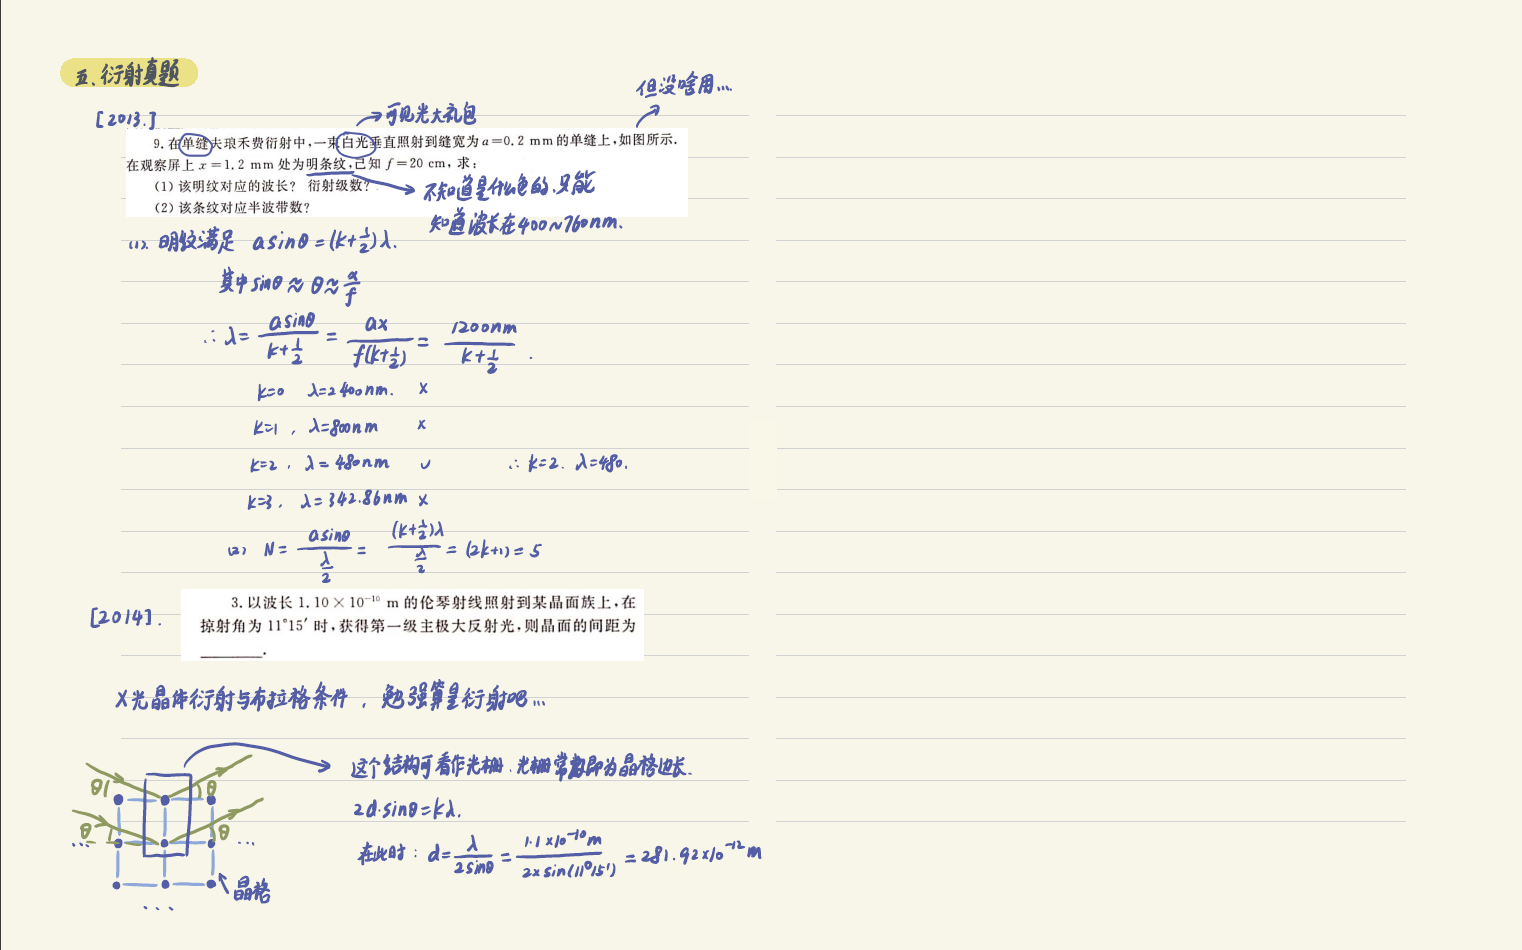 五、衍射真题
但没啥用...
[2013.]
可见光大礼包
9.在单缝夫琅禾费衍射中,一束白光垂直照射到缝宽为a=0.2 mm的单缝上,如图所示.
在观察屏上 x=1.2 mm 处为明条纹,已知 f=20 cm,求:
(1)该明纹对应的波长? 衍射级数?
(2)该条纹对应半波带数?
不知道是什么色的,只能
知道波长在400~760nm.
(1). 明纹满足 asinθ=(k+1/2)λ.
其中sinθ≈θ≈x/f
∴ λ= asinθ/(k+1/2) = ax/(f(k+1/2)) = 1200nm/(k+1/2) .
k=0 λ=2400nm. ×
k=1 , λ=800nm ×
k=2 , λ=480nm ∪ ∴ k=2. λ=480.
k=3 , λ=342.86nm ×
(2) N= asinθ/(λ/2) = (k+1/2)λ/(λ/2) = (2k+1) = 5
[2014].
3.以波长 1.10×10⁻¹⁰ m 的伦琴射线照射到某晶面族上,在
掠射角为 11°15′ 时,获得第一级主极大反射光,则晶面的间距为
________.
X光晶体衍射与布拉格条件 , 勉强算是衍射吧...
这个结构可看作光栅.光栅常数即为晶格边长.
2d·sinθ=kλ.
在此时: d= λ/2sinθ = 1.1×10⁻¹⁰m/2×sin(11°15′) = 281.92×10⁻¹²m
θ
θ
θ
θ
...
...
晶格
...